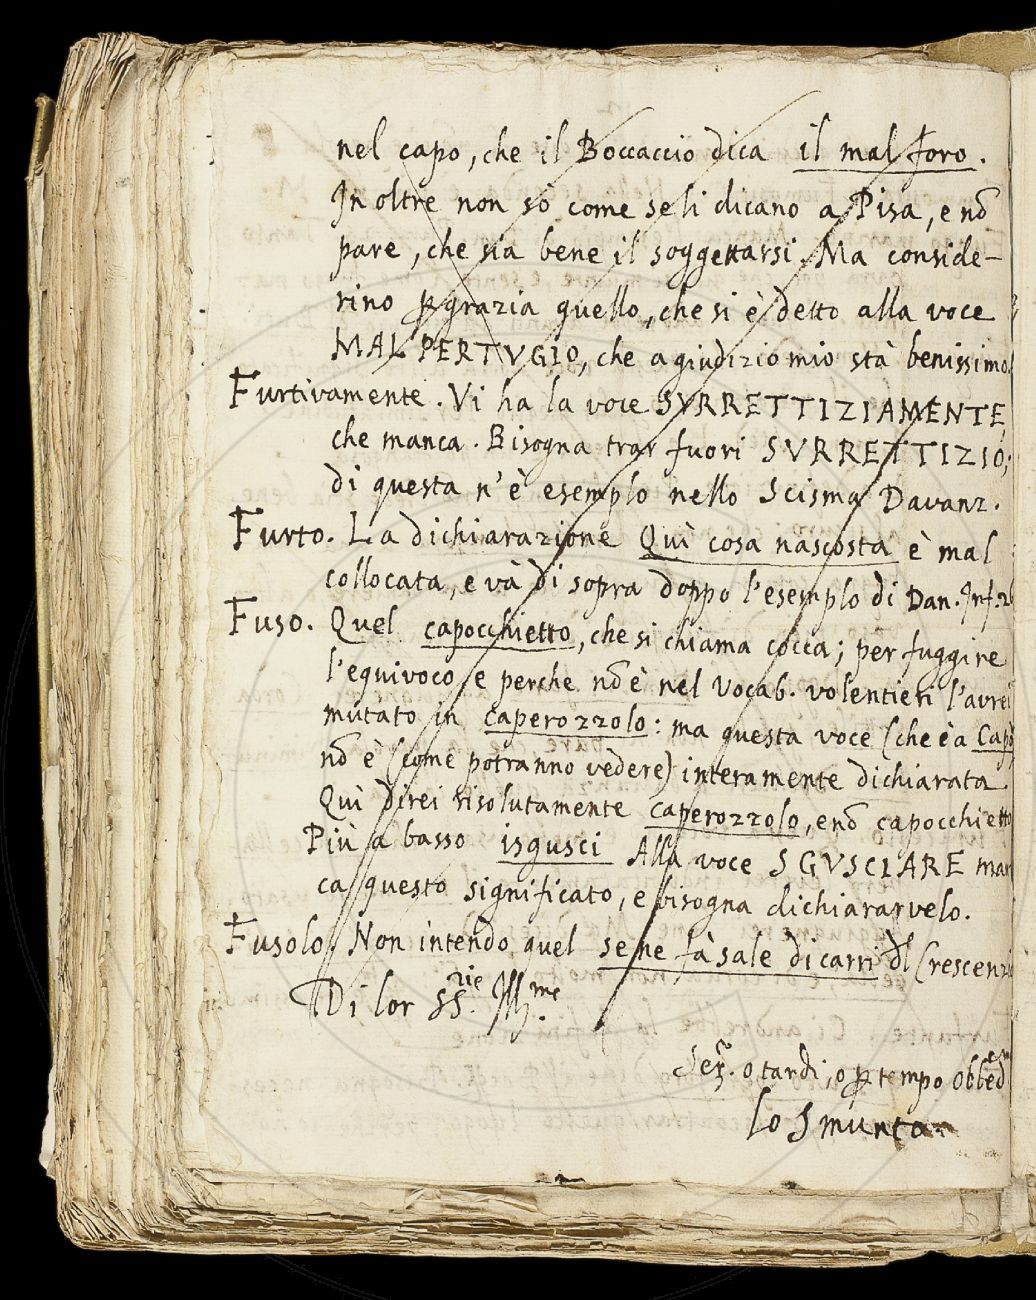 nel capo, che il Boccaccio dica il mal foro.
In oltre non sò come se li dicano a Pisa, e nō
pare, che sia bene il soggettarsi. Ma conside-
rino ꝑ grazia quello, che si è detto alla voce
MAL PERTVGIO, che a giudizio mio stà benissimo.
Furtivamente. Vi ha la voce SVRRETTIZIAMENTE,
che manca. Bisogna trar fuori SVRRETTIZIO;
di questa n'è esemplo nello Scisma Davanz.
Furto. La dichiarazione Quì cosa nascosta è mal
collocata, e và di sopra doppo l'esemplo di Dan. Inf. 2
Fuso. Quel capocchietto, che si chiama cocca; per fuggire
l'equivoco, e perche nō è nel Vocab. volentieri l'avrei
mutato in caperozzolo: ma questa voce (che è a Capo
nō è (come potranno vedere) interamente dichiarata
Quì direi risolutamente caperozzolo, e nō capocchietto
Più a basso isgusci Alla voce SGVSCIARE man
ca questo significato, e bisogna dichiararvelo.
Fusolo. Non intendo quel se ne fà sale di carri dl Crescenz
Di lor SS.rie Ill.me
Ser. o tardi, o ꝑ tempo obbed
Lo Smunta